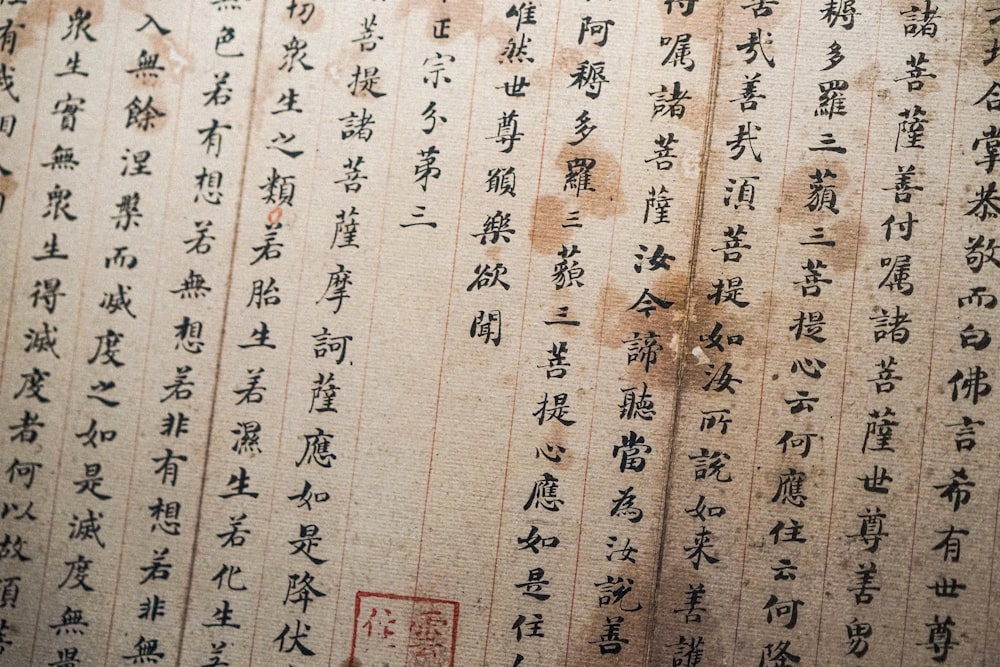 地合掌恭敬而白佛言希有世尊
諸菩薩善付囑諸菩薩世尊善男
耨多羅三藐三菩提心云何應住云何降
哉善哉須菩提如汝所說如来善護
得囑諸菩薩汝今諦聽當為汝說善
阿耨多羅三藐三菩提心應如是住
唯然世尊願樂欲聞
正宗分第三
菩提諸菩薩摩訶薩應如是降伏
切衆生之類若胎生若濕生若化生若
無色若有想若無想若非有想若非無
入無餘涅槃而滅度之如是滅度無量
衆生實無衆生得滅度者何以故須菩
有我相人
雲
住